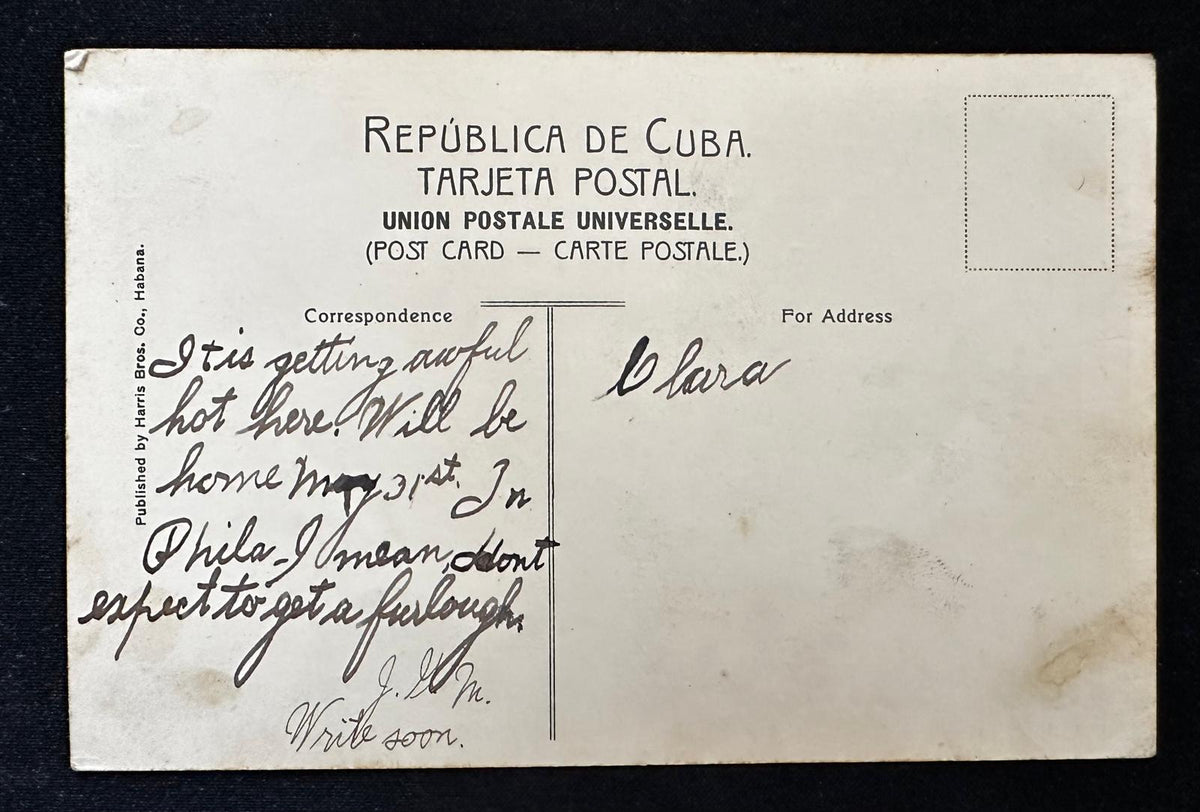 REPÚBLICA DE CUBA.
TARJETA POSTAL.
UNION POSTALE UNIVERSELLE.
(POST CARD — CARTE POSTALE.)
Published by Harris Bros. Co., Habana.
Correspondence
It is getting awful
hot here. Will be
home May 31st. In
Phila - I mean, dont
expect to get a furlough.
J. M.
Write soon.
For Address
Clara